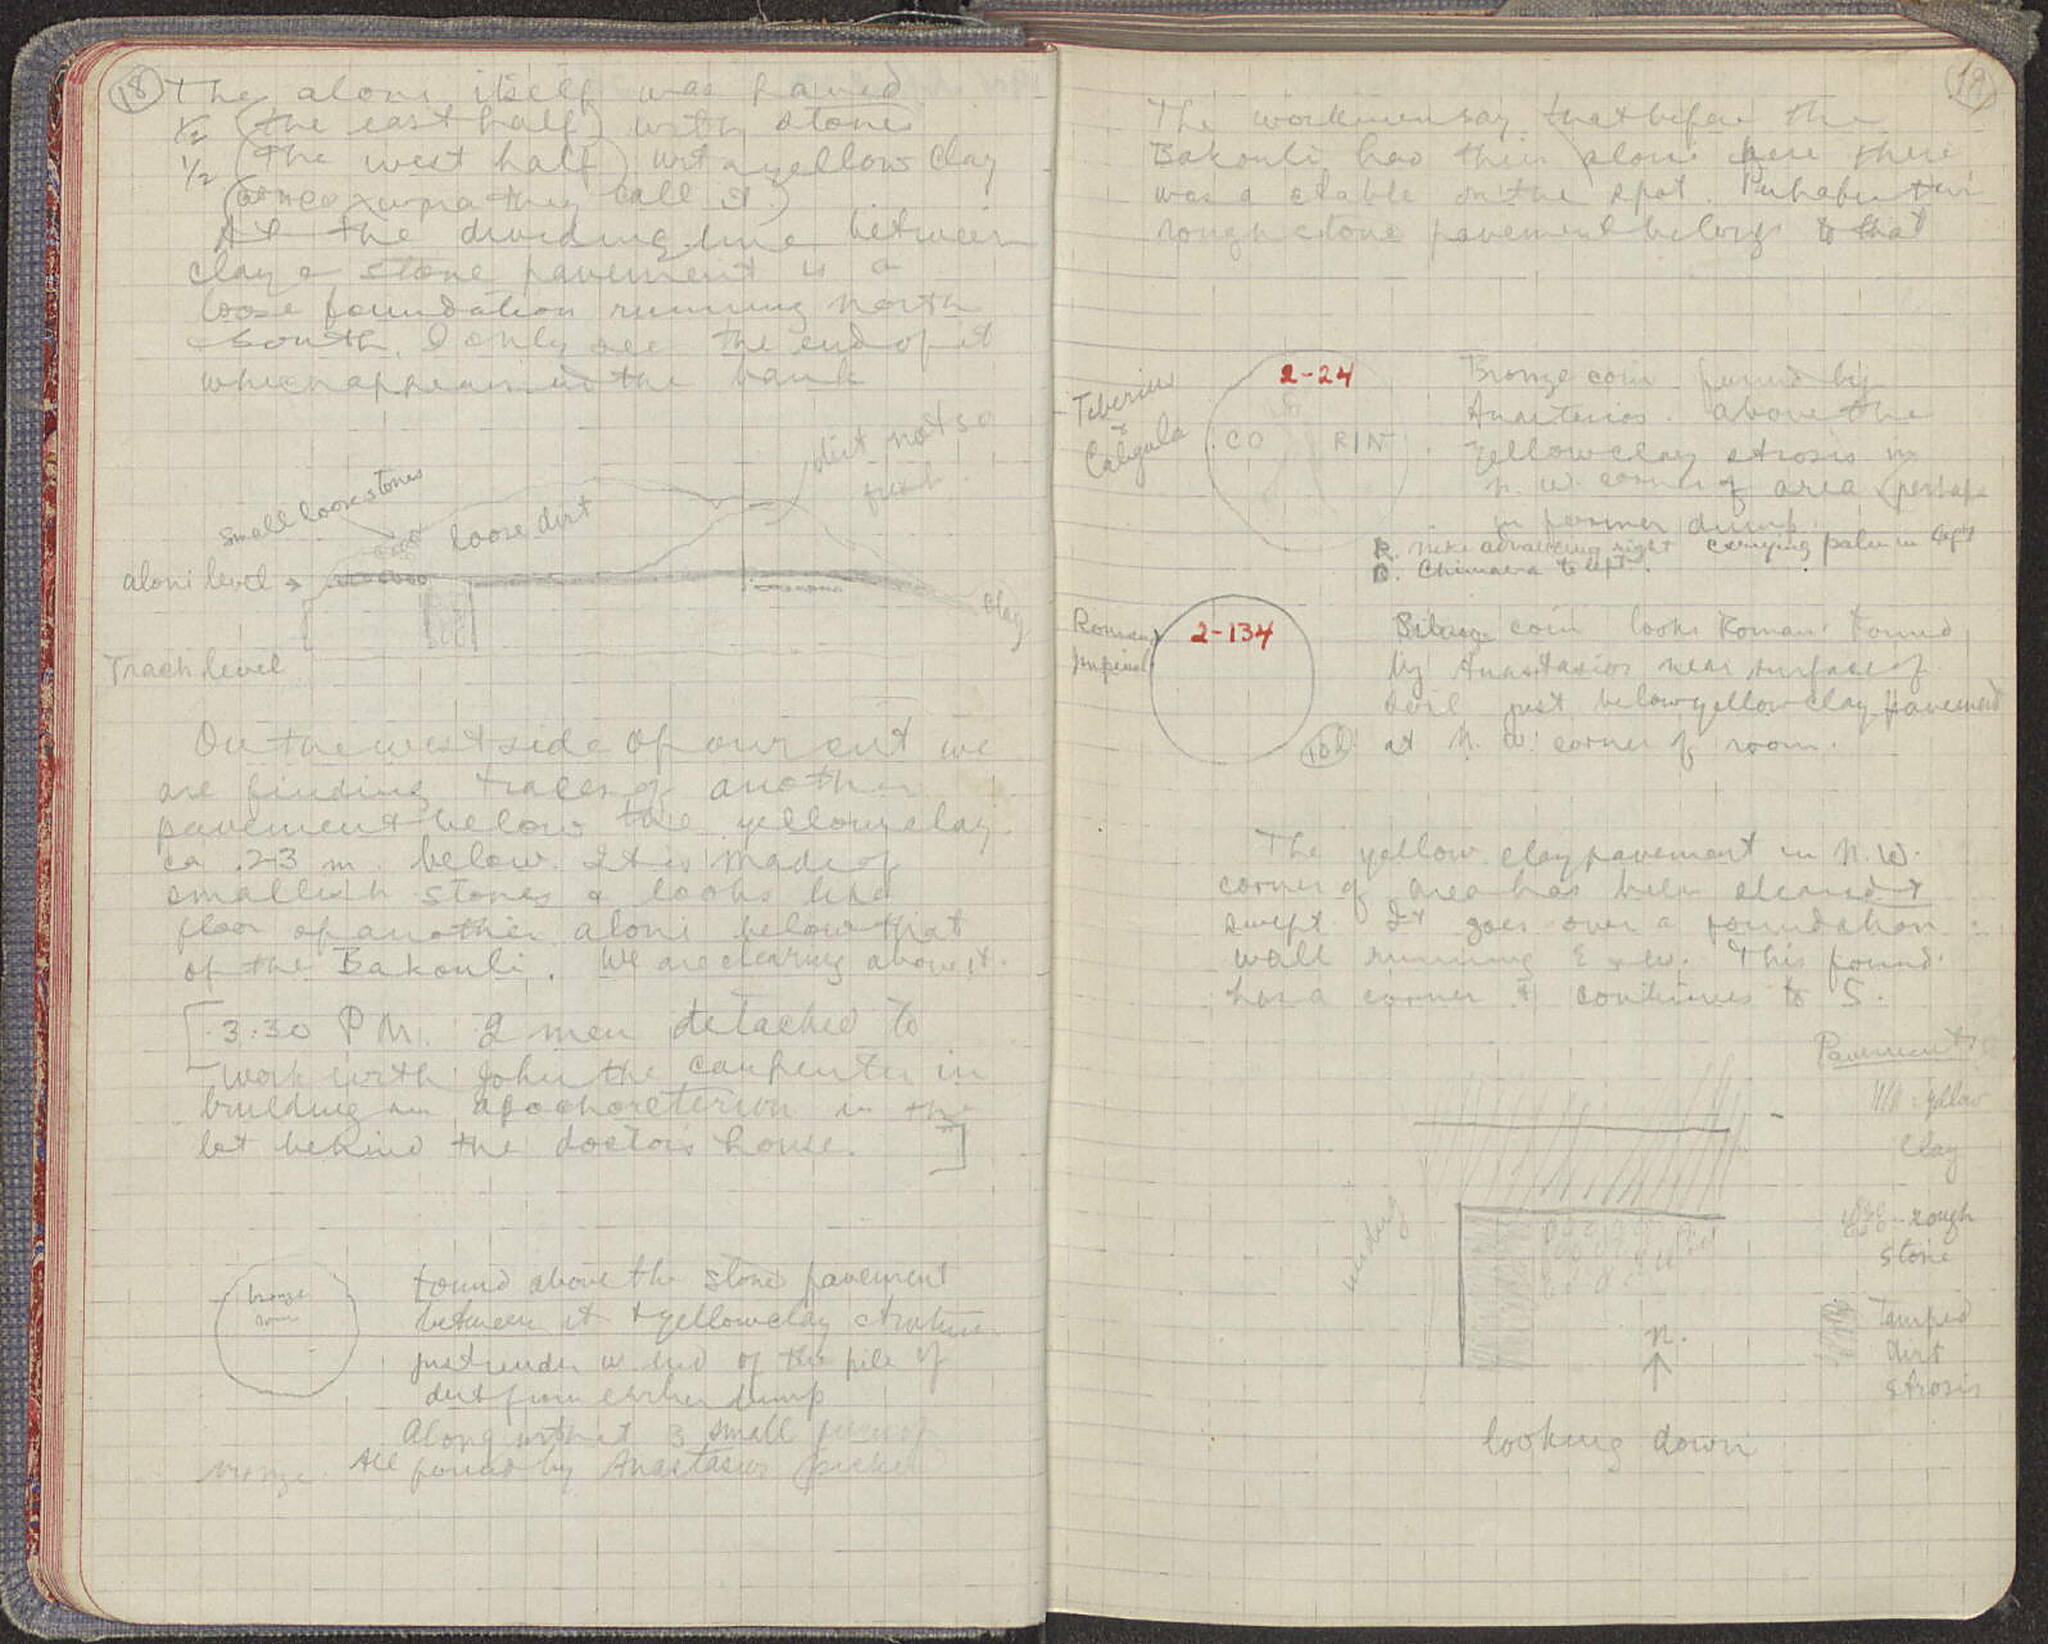 18
The aloni itself was paved
1/2 (the east half) with stones
1/2 (the west half) with yellow clay
they call it)
At the dividing line between
clay & stone pavement is a
loose foundation running north
south. I only see the end of it
which appears in the bank
dirt not so
fresh
small loose stones
loose dirt
aloni level →
clay
Track level
On the west side of our cut we
are finding traces of another
pavement below the yellow clay
ca .23 m. below. It is made of
smallish stones & looks like
floor of another aloni below that
of the Bakouli. We are clearing above it.
[3:30 P.M. 2 men detached to
work with John the carpenter in
building an apochoreterion in the
lot behind the doctor's house. ]
bronze
coin
Found above the stone pavement
between it & yellow clay stratum
just under w. end of the pile of
dirt from earlier dump
Along with it 3 small pieces of
bronze. All found by Anastasios
19
The workmen say that before the
Bakouli had their aloni here there
was a stable on the spot. Perhaps this
rough stone pavement belongs to that
Tiberius
&
Caligula
2-24
CO RIN
Bronze coin found by
Anastasios. above the
yellow clay strosis in
n. w. corner of area (perhaps
in former dump
R. Nike advancing right carrying palm in left
O. Chimaera to left.
Roman
Imperial
2-134
coin looks Roman. Found
by Anastasios near surface of
soil just below yellow clay pavement
at N. W. corner of room.
The yellow clay pavement in N.W.
corner of area has been cleared &
swept. It goes over a foundation
wall running E & W. This found.
has a corner & continues to S.
Pavements
//// : yellow
clay
rough
stone
Tamped
dirt
strosis
n.
↑
looking down